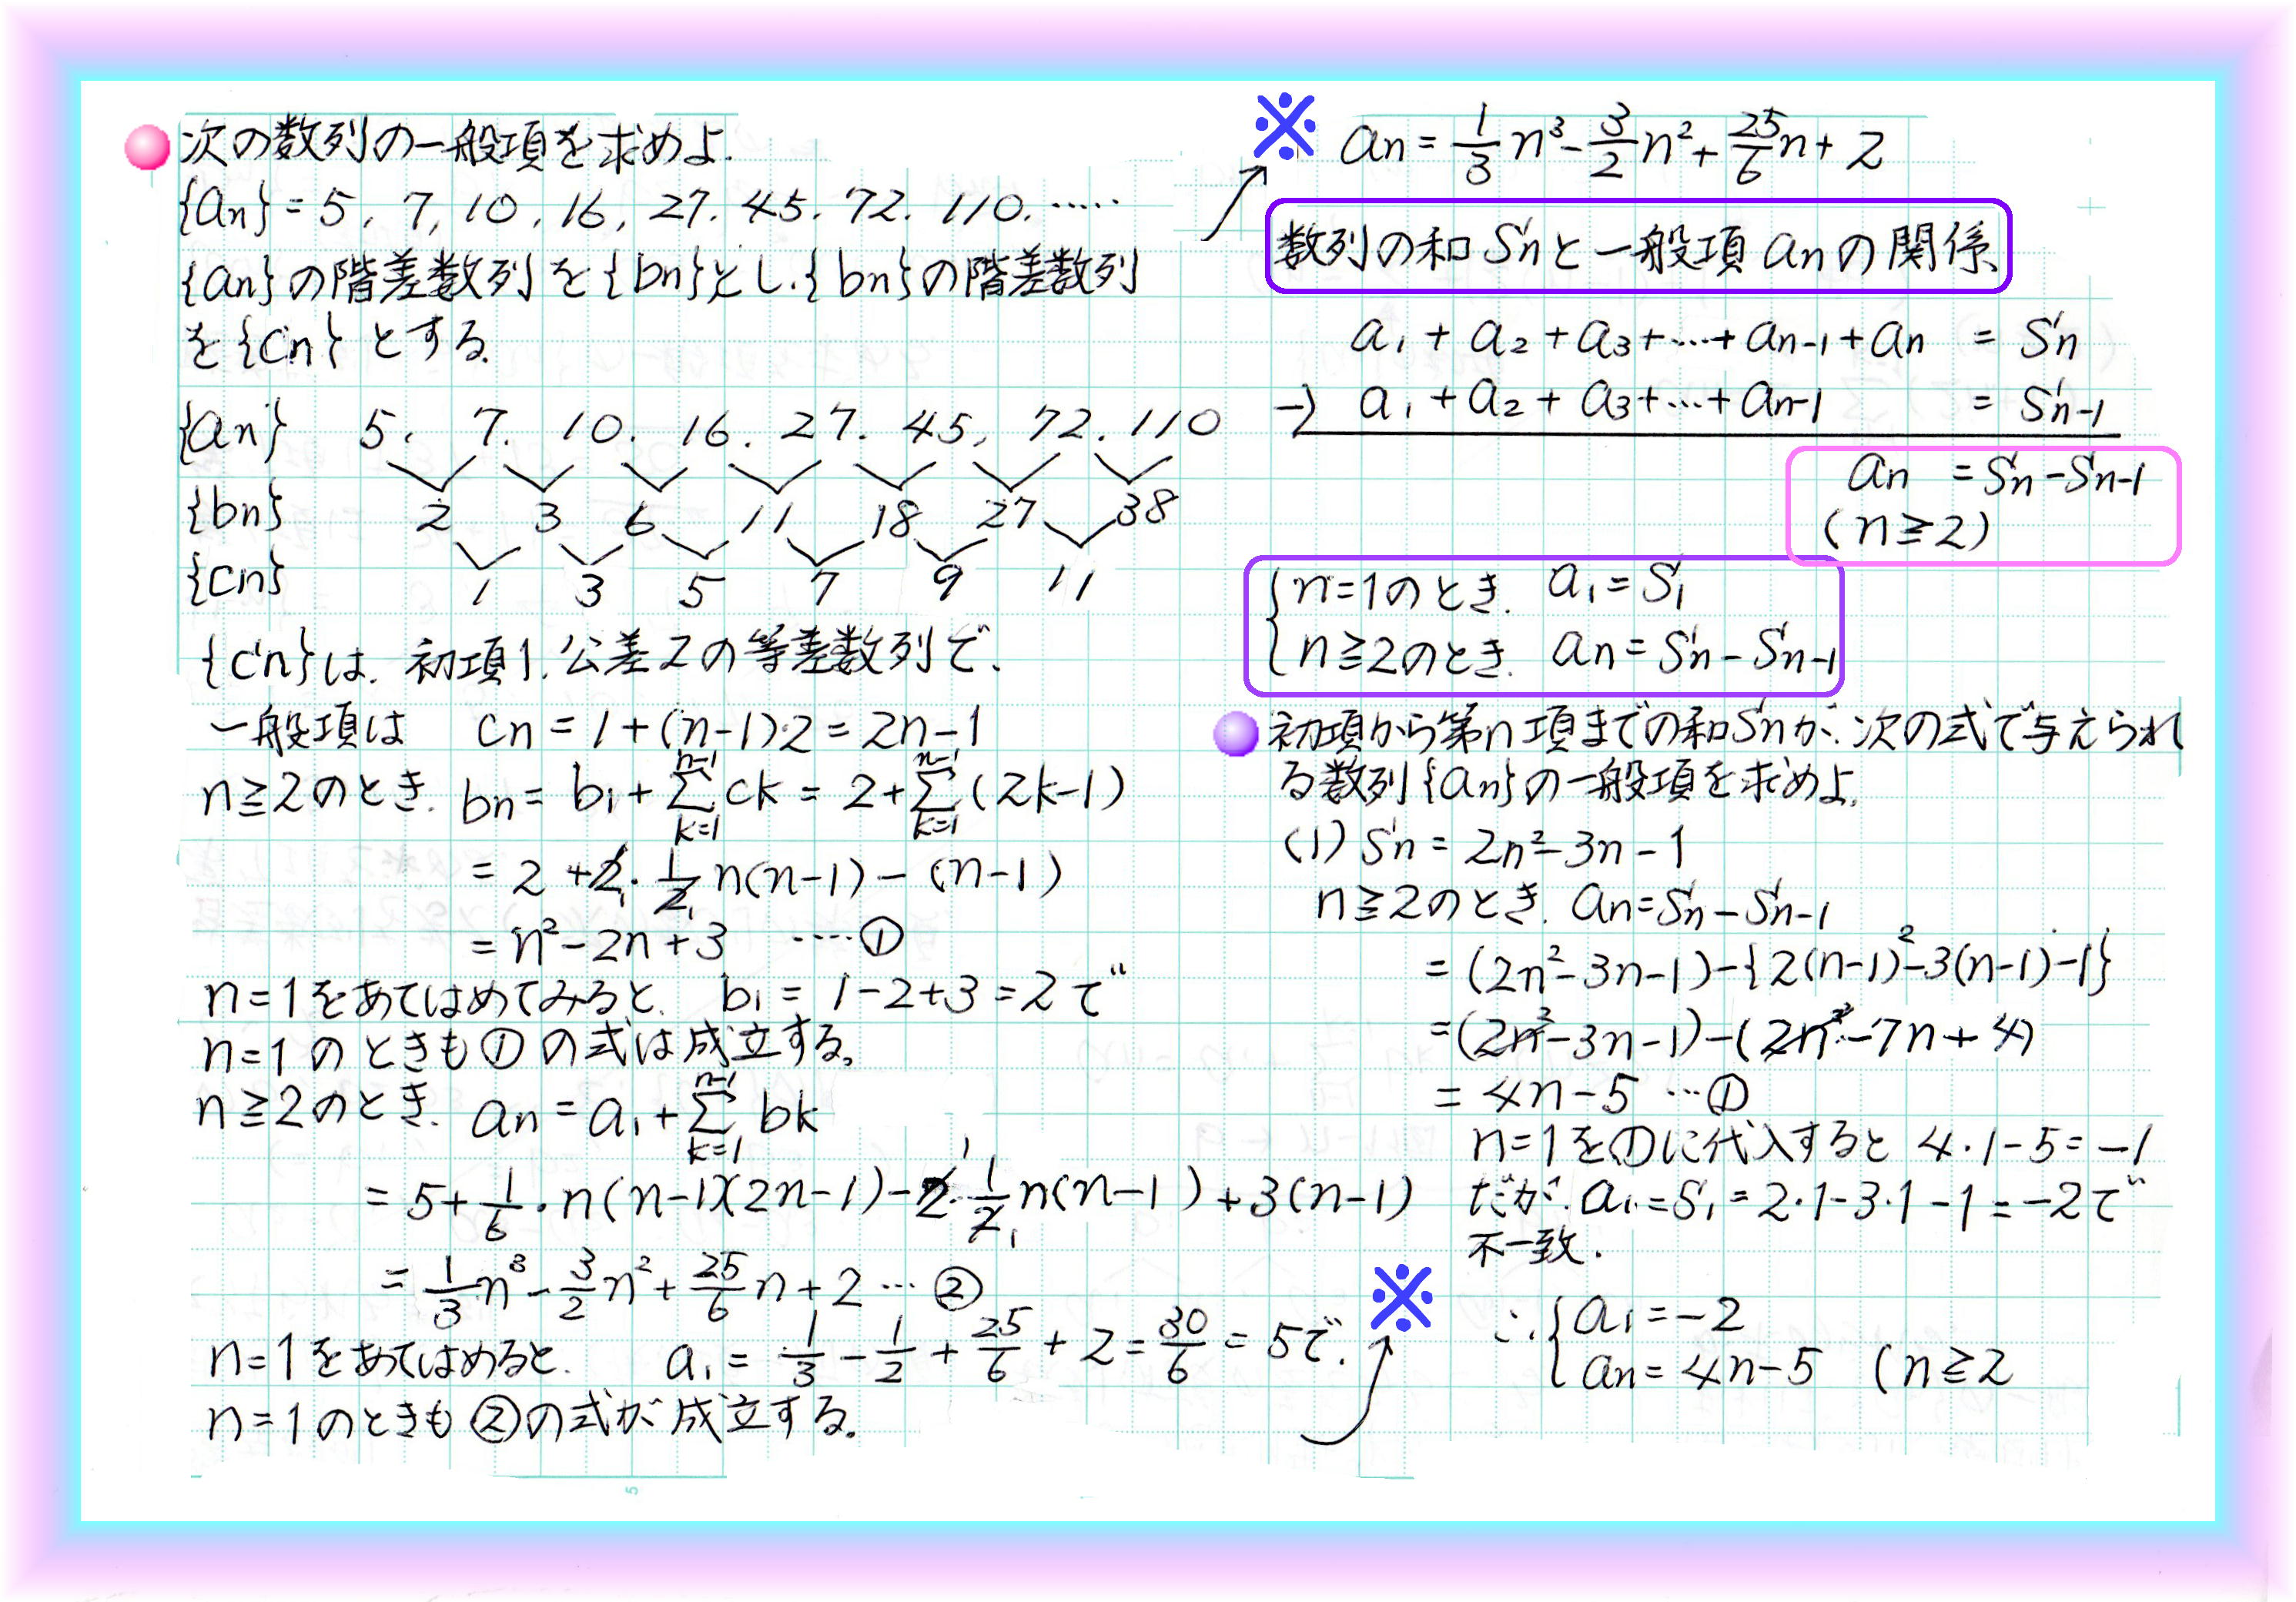 次の数列の一般項を求めよ.
{an} = 5, 7, 10, 16, 27, 45, 72, 110, ……
{an}の階差数列を{bn}とし,{bn}の階差数列
を{cn}とする.
{an} 5, 7, 10, 16, 27, 45, 72, 110
{bn} 2 3 6 11 18 27 38
{cn} 1 3 5 7 9 11
{cn}は, 初項1, 公差2の等差数列で,
一般項は cn = 1+(n-1)・2 = 2n-1
n≧2のとき, bn = b1 + Σ[k=1, n-1] ck = 2 + Σ[k=1, n-1] (2k-1)
= 2 + 2・1/2 n(n-1) - (n-1)
= n²-2n+3 ……①
n=1をあてはめてみると, b1 = 1-2+3 = 2で
n=1のときも①の式は成立する。
n≧2のとき, an = a1 + Σ[k=1, n-1] bk
= 5 + 1/6・n(n-1)(2n-1) - 2・1/2 n(n-1) + 3(n-1)
= 1/3 n³ - 3/2 n² + 25/6 n + 2 … ②
n=1をあてはめると, a1 = 1/3 - 1/2 + 25/6 + 2 = 30/6 = 5で,
n=1のときも②の式が成立する。
※
※ an = 1/3 n³ - 3/2 n² + 25/6 n + 2
数列の和Snと一般項anの関係
a1 + a2 + a3 + … + an-1 + an = Sn
-) a1 + a2 + a3 + … + an-1 = Sn-1
an = Sn - Sn-1
(n≧2)
{n=1のとき, a1 = S1
n≧2のとき, an = Sn - Sn-1
初項から第n項までの和Snが, 次の式で与えられ
る数列{an}の一般項を求めよ.
(1) Sn = 2n²-3n-1
n≧2のとき, an = Sn - Sn-1
= (2n²-3n-1)-{2(n-1)²-3(n-1)-1}
= (2n²-3n-1)-(2n²-7n+4)
= 4n-5 …①
n=1を①に代入すると 4・1-5 = -1
だが, a1 = S1 = 2・1-3・1-1 = -2で
不一致.
∴{a1 = -2
an = 4n-5 (n≧2
5